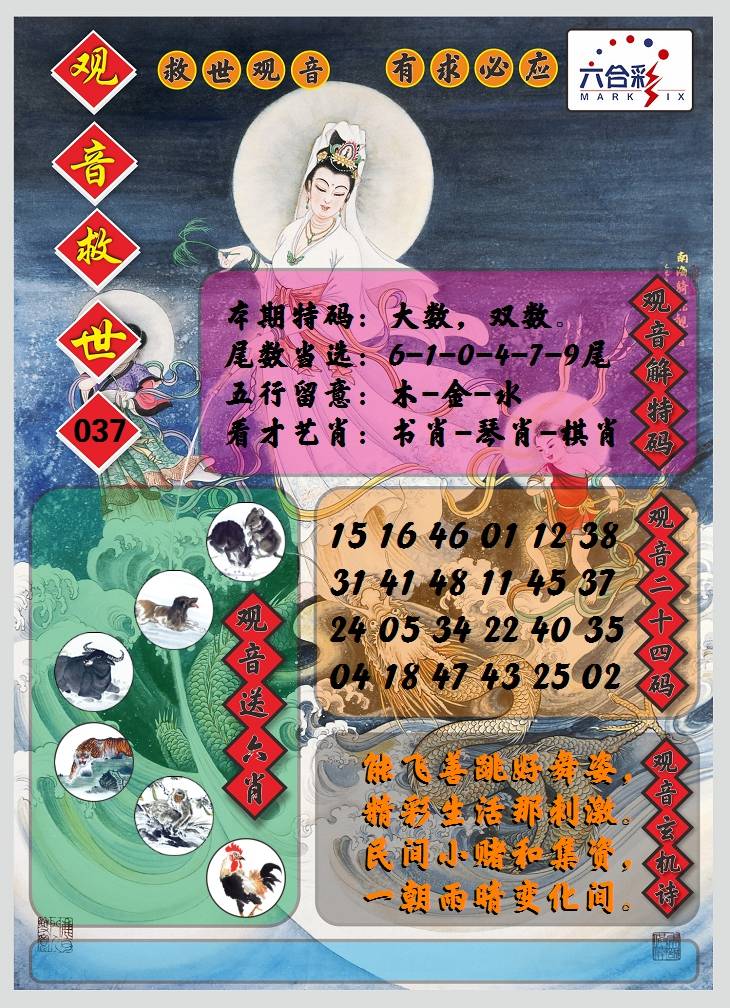 观音救世
037
救世观音 有求必应
六合彩
MARK SIX
南海
观音解特码
本期特码：大数，双数。
尾数当选：6-1-0-4-7-9尾
五行留意：木-金-水
看才艺肖：书肖-琴肖-棋肖
观音送六肖
观音二十四码
15 16 46 01 12 38
31 41 48 11 45 37
24 05 34 22 40 35
04 18 47 43 25 02
观音玄机诗
能飞善跳好舞姿，
精彩生活那刺激。
民间小赌和集资，
一朝雨晴变化间。